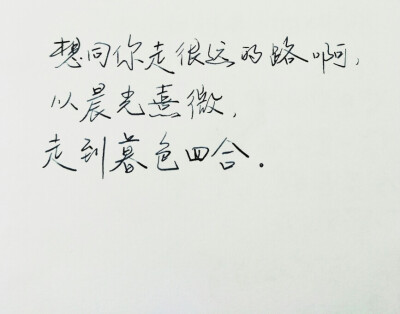 想同你走很远的路啊,
以晨光熹微,
走到暮色四合.